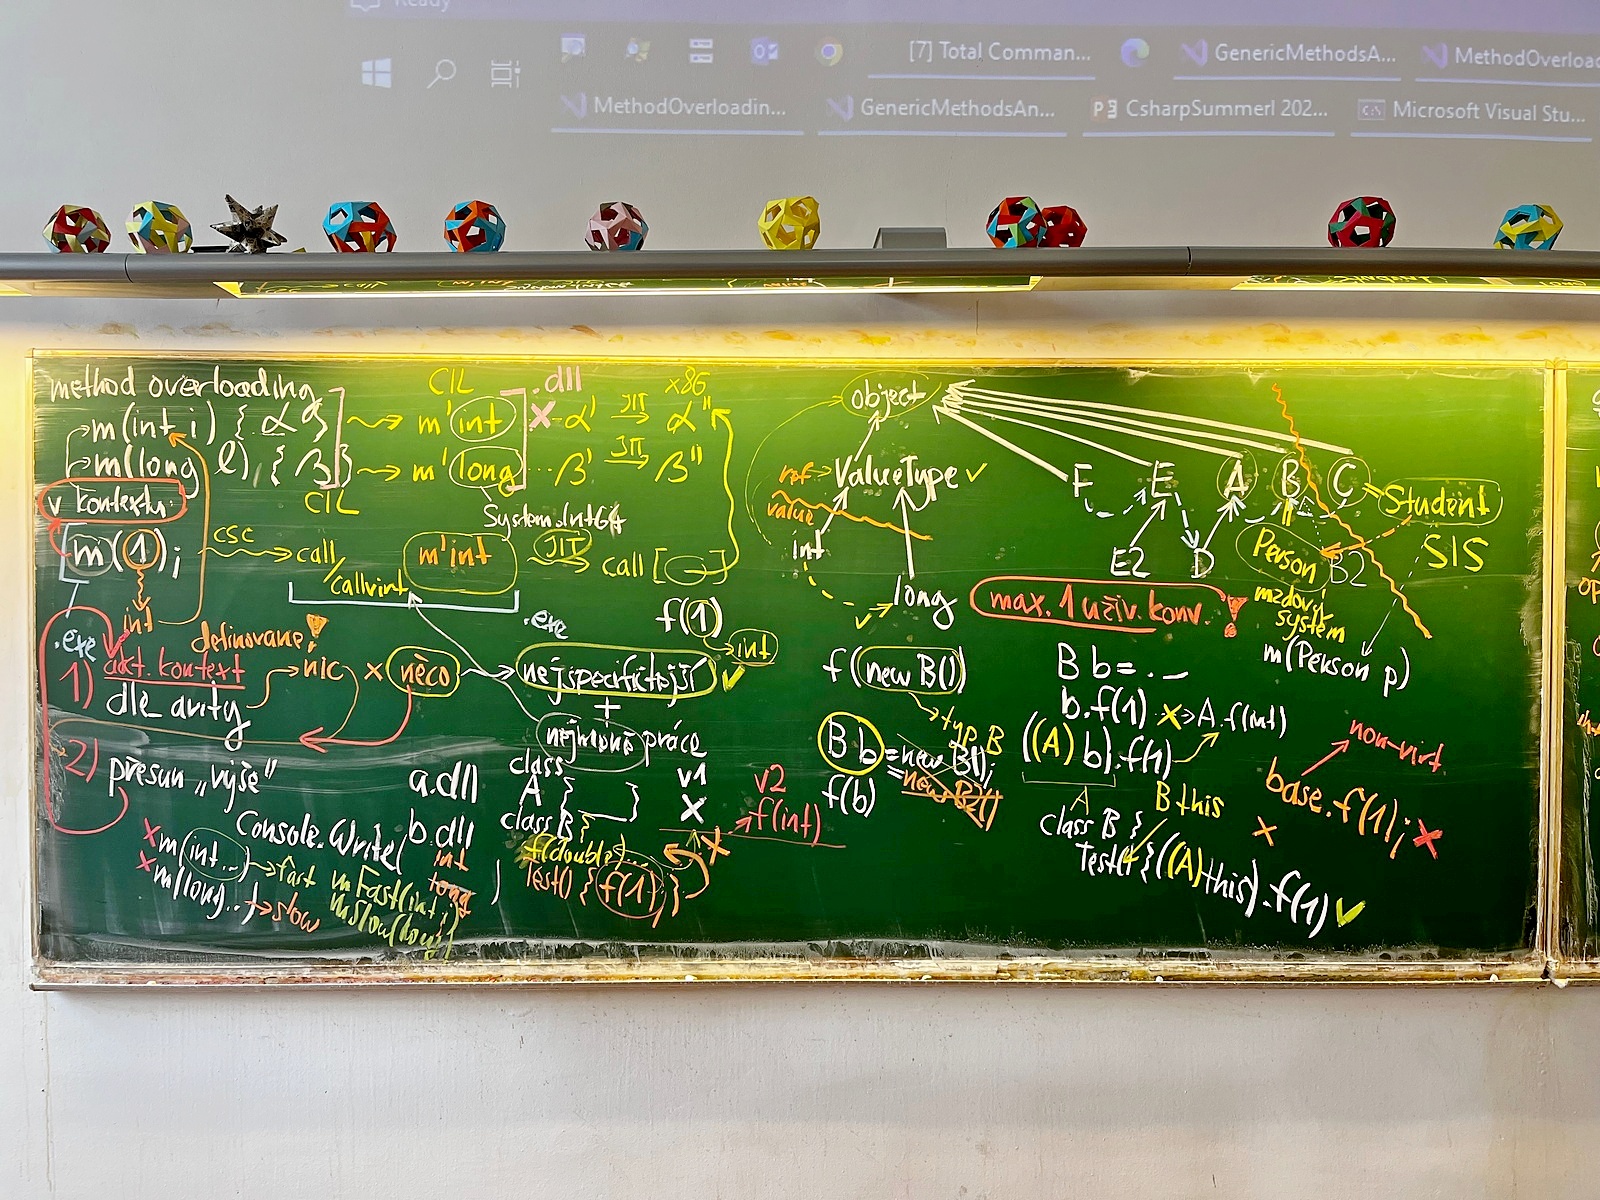 Ready
[7] Total Comman...
GenericMethodsA...
MethodOverloa
MethodOverloadin...
GenericMethodsAn...
CsharpSummerI 202...
Microsoft Visual Stu...
method overloading
CIL
.dll
x86
m(int i) { α }
m'int
x
α'
JIT
α"
m(long l) { β }
m'long
...β'
JIT
β"
CIL
System.Int64
v kontextu
m(1);
csc
call/callvirt
m'int
JIT
call [ ]
int
.exe
.exe
definované!
1) akt. kontext
nic x něco
nejspecifičtější
dle arity
+
nejméně práce
2) přesun „výše"
a.dll
b.dll
Console.Write(
int
long
)
x m(int...) → fast
x m(long..) → slow
mFast(int i)
mSlow(long)
class A { }
class B {
f(double)...
Test() { f(1) }
v1
x
v2
f(int)
x
f(1)
int
object
ref
value
ValueType
int
long
F
E
A
B
C
Student
E2
D
Person
B2
SIS
max. 1 uživ. konv. !
mzdový
systém
m(Person p)
f(new B())
typ B
B b = new B();
= new B2()
f(b)
B b = ...
b.f(1) x → A.f(int)
((A) b).f(1)
A
B this
class B {
Test() {((A)this).f(1)
non-virt
base.f(1); x
x